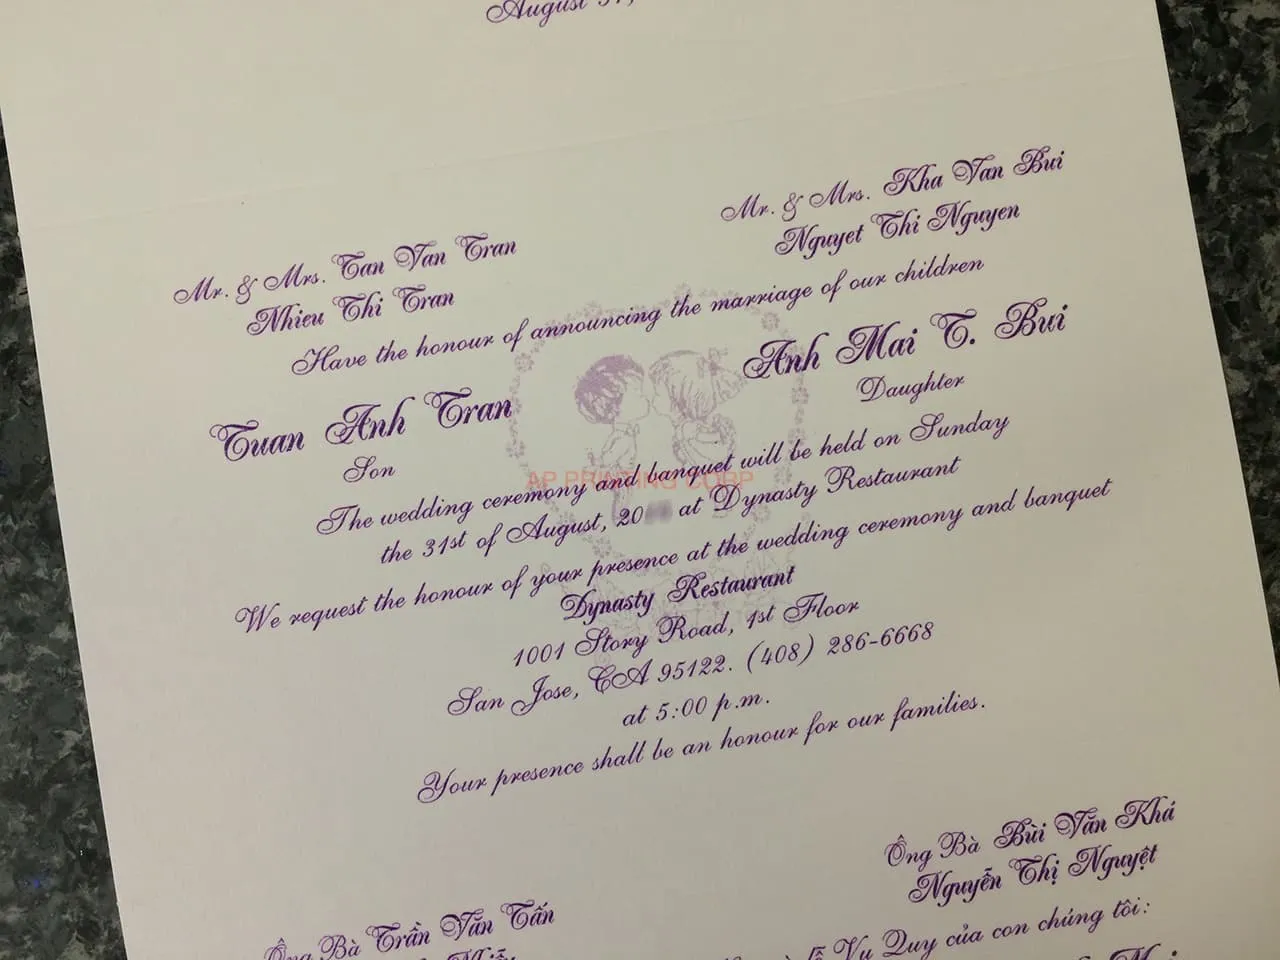 August 31,
Mr. & Mrs. Tan Van Tran
Nhieu Thi Tran
Mr. & Mrs. Kha Van Bui
Nguyet Thi Nguyen
Have the honour of announcing the marriage of our children
Tuan Anh Tran
Son
Anh Mai T. Bui
Daughter
The wedding ceremony and banquet will be held on Sunday
AP PRINTING CORP
the 31st of August, 20 at Dynasty Restaurant
We request the honour of your presence at the wedding ceremony and banquet
Dynasty Restaurant
1001 Story Road, 1st Floor
San Jose, CA 95122. (408) 286-6668
at 5:00 p.m.
Your presence shall be an honour for our families.
Ông Bà Trần Văn Tấn
Ông Bà Bùi Văn Khá
Nguyễn Thị Nguyệt
Lễ Vu Quy của con chúng tôi: